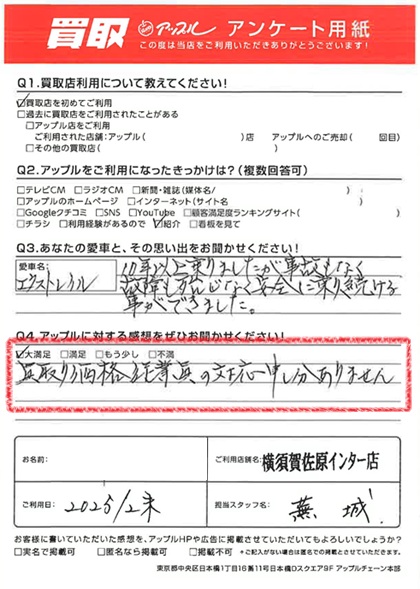 買取 アップル アンケート用紙
この度は当店をご利用いただきありがとうございます!
Q1.買取店利用について教えてください!
☑買取店を初めてご利用
□過去に買取店をご利用されたことがある
□アップル店をご利用
ご利用された店舗:アップル( )店 アップルへのご売却( 回目)
□その他の買取店( )
Q2.アップルをご利用になったきっかけは?(複数回答可)
□テレビCM □ラジオCM □新聞・雑誌(媒体名/ )
□アップルのホームページ □インターネット(サイト名 )
□Googleクチコミ □SNS □YouTube □顧客満足度ランキングサイト( )
□チラシ □利用経験があるので ☑紹介 □看板を見て
Q3.あなたの愛車と、その思い出をお聞かせください!
愛車名:
エクストレイル
10年以上乗りましたが事故もなく
故障も殆どなく安全に乗り続ける
事ができました。
Q4.アップルに対する感想をぜひお聞かせください!
☑大満足 □満足 □もう少し □不満
買取り価格、従業員の対応申し分ありません
お名前:
ご利用店舗名: 横須賀佐原インター店
ご利用日: 2025/2末
担当スタッフ名: 蕪城
お客様に書いていただいた感想を、アップルHPや広告に掲載させていただいてもよろしいでしょうか?
□実名で掲載可 □匿名なら掲載可 □掲載不可 *ご記入がない場合は匿名での掲載とさせていただきます。
東京都中央区日本橋1丁目16番11号日本橋Dスクエア9F アップルチェーン本部